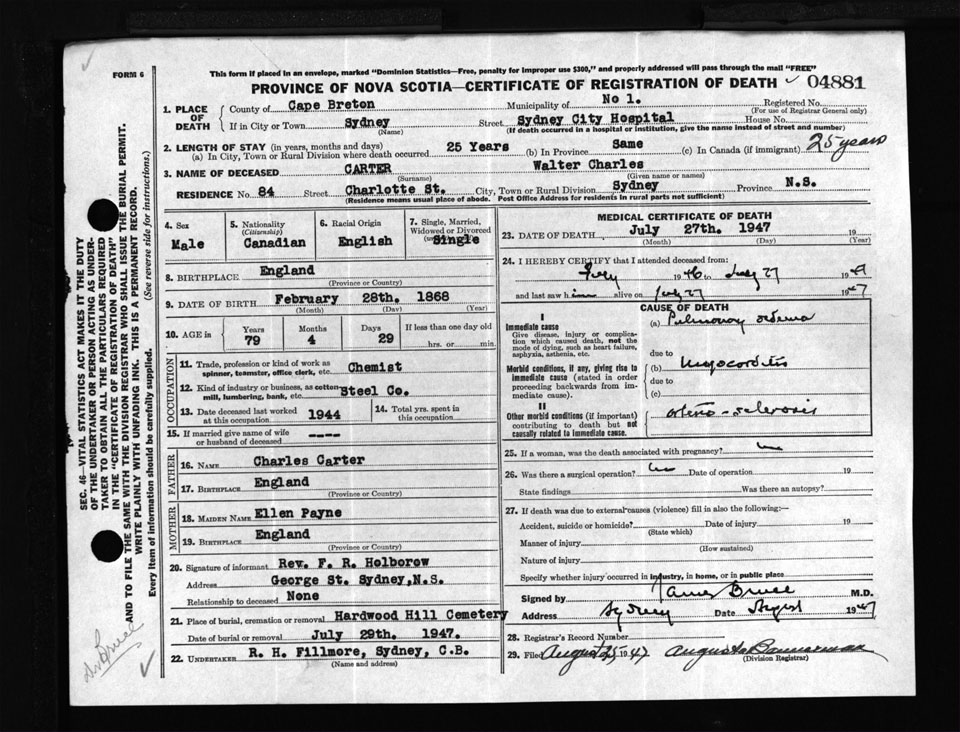 FORM 6
This form if placed in an envelope, marked "Dominion Statistics—Free, penalty for improper use $300," and properly addressed will pass through the mail "FREE"
PROVINCE OF NOVA SCOTIA—CERTIFICATE OF REGISTRATION OF DEATH 04881
1. PLACE OF DEATH County of Cape Breton Municipality of No 1. Registered No.
(For use of Registrar General only)
If in City or Town Sydney Street Sydney City Hospital House No.
(Name) (If death occurred in a hospital or institution, give the name instead of street and number)
2. LENGTH OF STAY (in years, months and days)
(a) In City, Town or Rural Division where death occurred 25 Years (b) In Province Same (c) In Canada (if immigrant) 25 years
3. NAME OF DECEASED CARTER Walter Charles
(Surname) (Given name or names)
RESIDENCE No. 84 Street Charlotte St. City, Town or Rural Division Sydney Province N.S.
(Residence means usual place of abode. Post Office Address for residents in rural parts not sufficient)
4. Sex Male
5. Nationality (Citizenship) Canadian
6. Racial Origin English
7. Single, Married, Widowed or Divorced Single
8. BIRTHPLACE England
(Province or Country)
9. DATE OF BIRTH February 28th. 1868
(Month) (Day) (Year)
10. AGE in Years Months Days If less than one day old
79 4 29 hrs. or min.
OCCUPATION
11. Trade, profession or kind of work as spinner, teamster, office clerk, etc. Chemist
12. Kind of industry or business, as cotten mill, lumbering, bank, etc. Steel Co.
13. Date deceased last worked at this occupation 1944
14. Total yrs. spent in this occupation
15. If married give name of wife or husband of deceased ----
FATHER
16. NAME Charles Carter
17. BIRTHPLACE England
(Province or Country)
MOTHER
18. MAIDEN NAME Ellen Payne
19. BIRTHPLACE England
(Province or Country)
20. Signature of informant Rev. F. R. Holborow
Address George St. Sydney,N.S.
Relationship to deceased None
21. Place of burial, cremation or removal Hardwood Hill Cemetery
Date of burial or removal July 29th. 1947.
22. UNDERTAKER R. H. Fillmore, Sydney, C.B.
(Name and address)
MEDICAL CERTIFICATE OF DEATH
23. DATE OF DEATH July 27th. 1947 19
(Month) (Day) (Year)
24. I HEREBY CERTIFY that I attended deceased from:
1946 to July 27 19
and last saw him alive on July 27 1947
CAUSE OF DEATH
I
Immediate cause
Give disease, injury or complication which caused death, not the mode of dying, such as heart failure, asphyxia, asthenia, etc.
(a) Pulmonary oedema
due to
Morbid conditions, if any, giving rise to immediate cause (stated in order proceeding backwards from immediate cause).
(b) Myocarditis
due to
(c)
II
Other morbid conditions (if important) contributing to death but not causally related to immediate cause.
arterio-sclerosis
25. If a woman, was the death associated with pregnancy?
26. Was there a surgical operation? no Date of operation 19
State findings Was there an autopsy?
27. If death was due to external causes (violence) fill in also the following:—
Accident, suicide or homicide? Date of injury 19
(State which)
Manner of injury
(How sustained)
Nature of injury
Specify whether injury occurred in industry, in home, or in public place
Signed by James Bruce M.D.
Address Sydney Date August 1947
28. Registrar's Record Number
29. Filed August 1947 Augusta Bannerman
(Division Registrar)
SEC. 46—VITAL STATISTICS ACT MAKES IT THE DUTY
OF THE UNDERTAKER OR PERSON ACTING AS UNDER-
TAKER TO OBTAIN ALL THE PARTICULARS REQUIRED
IN THE "CERTIFICATE OF REGISTRATION OF DEATH"
AND TO FILE THE SAME WITH THE DIVISION REGISTRAR WHO SHALL ISSUE THE BURIAL PERMIT.
WRITE PLAINLY WITH UNFADING INK. THIS IS A PERMANENT RECORD.
Every item of information should be carefully supplied. (See reverse side for instructions.)
Dr Bruce